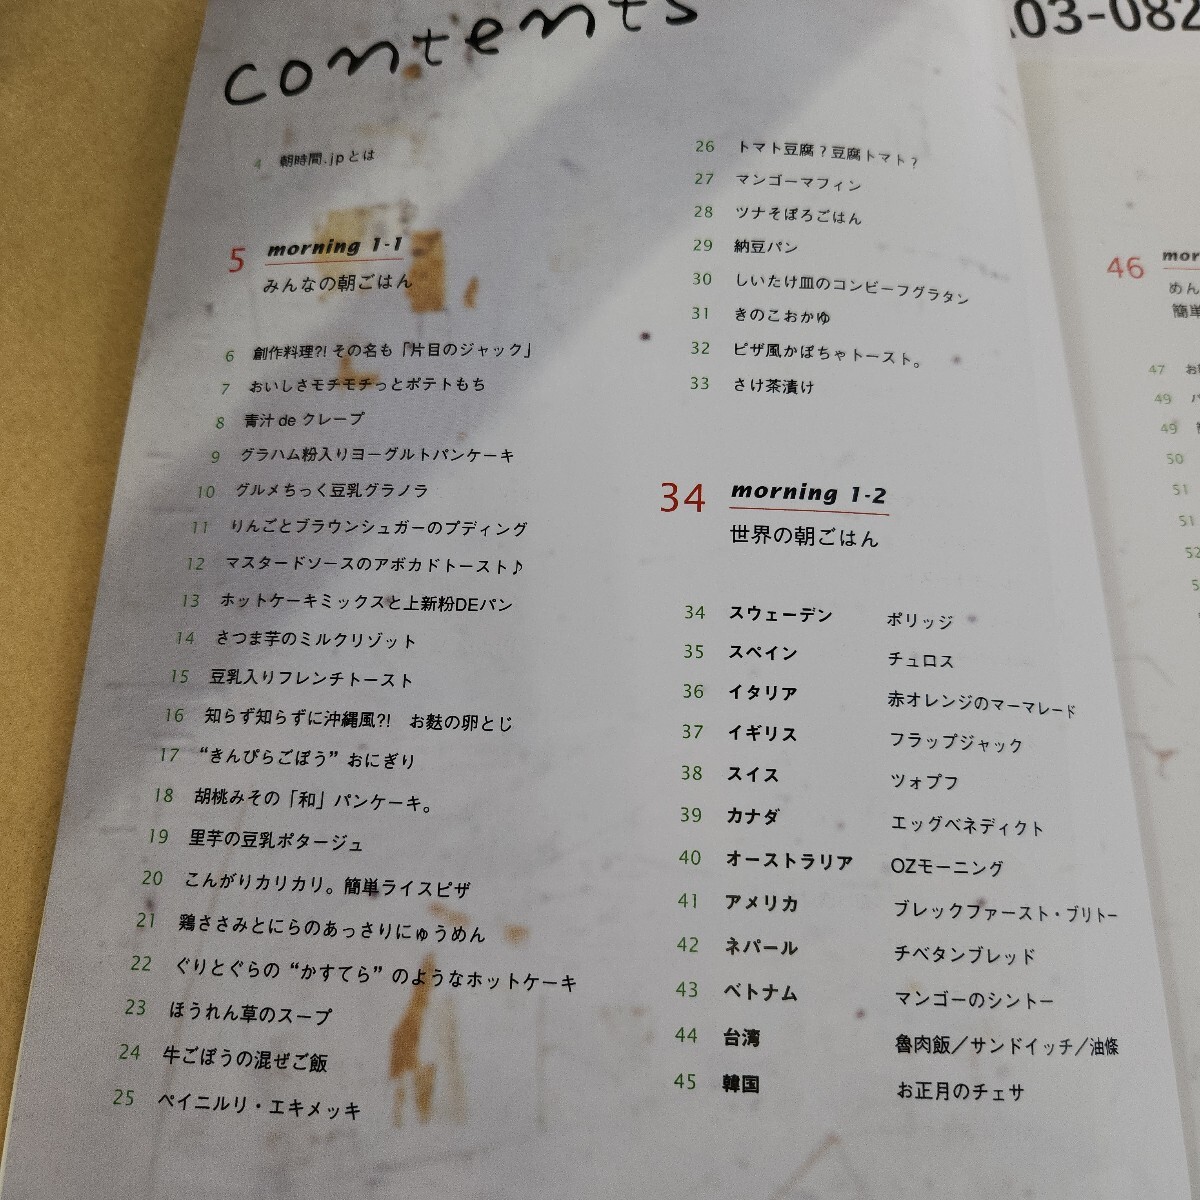 contents
4 朝時間.jpとは
5 morning 1-1
みんなの朝ごはん
6 創作料理?! その名も「片目のジャック」
7 おいしさモチモチっとポテトもち
8 青汁 de クレープ
9 グラハム粉入りヨーグルトパンケーキ
10 グルメちっく豆乳グラノラ
11 りんごとブラウンシュガーのプディング
12 マスタードソースのアボカドトースト♪
13 ホットケーキミックスと上新粉DEパン
14 さつま芋のミルクリゾット
15 豆乳入りフレンチトースト
16 知らず知らずに沖縄風?! お麩の卵とじ
17 “きんぴらごぼう” おにぎり
18 胡桃みその「和」パンケーキ。
19 里芋の豆乳ポタージュ
20 こんがりカリカリ。簡単ライスピザ
21 鶏ささみとにらのあっさりにゅうめん
22 ぐりとぐらの “かすてら” のようなホットケーキ
23 ほうれん草のスープ
24 牛ごぼうの混ぜご飯
25 ペイニルリ・エキメッキ
26 トマト豆腐？豆腐トマト？
27 マンゴーマフィン
28 ツナそぼろごはん
29 納豆パン
30 しいたけ皿のコンビーフグラタン
31 きのこおかゆ
32 ピザ風かぼちゃトースト。
33 さけ茶漬け
34 morning 1-2
世界の朝ごはん
34 スウェーデン ポリッジ
35 スペイン チュロス
36 イタリア 赤オレンジのマーマレード
37 イギリス フラップジャック
38 スイス ツォプフ
39 カナダ エッグベネディクト
40 オーストラリア OZモーニング
41 アメリカ ブレックファースト・ブリトー
42 ネパール チベタンブレッド
43 ベトナム マンゴーのシントー
44 台湾 魯肉飯／サンドイッチ／油條
45 韓国 お正月のチェサ
03-082
46 mor
めん
簡単
47 お
49
49
50
51
51
52